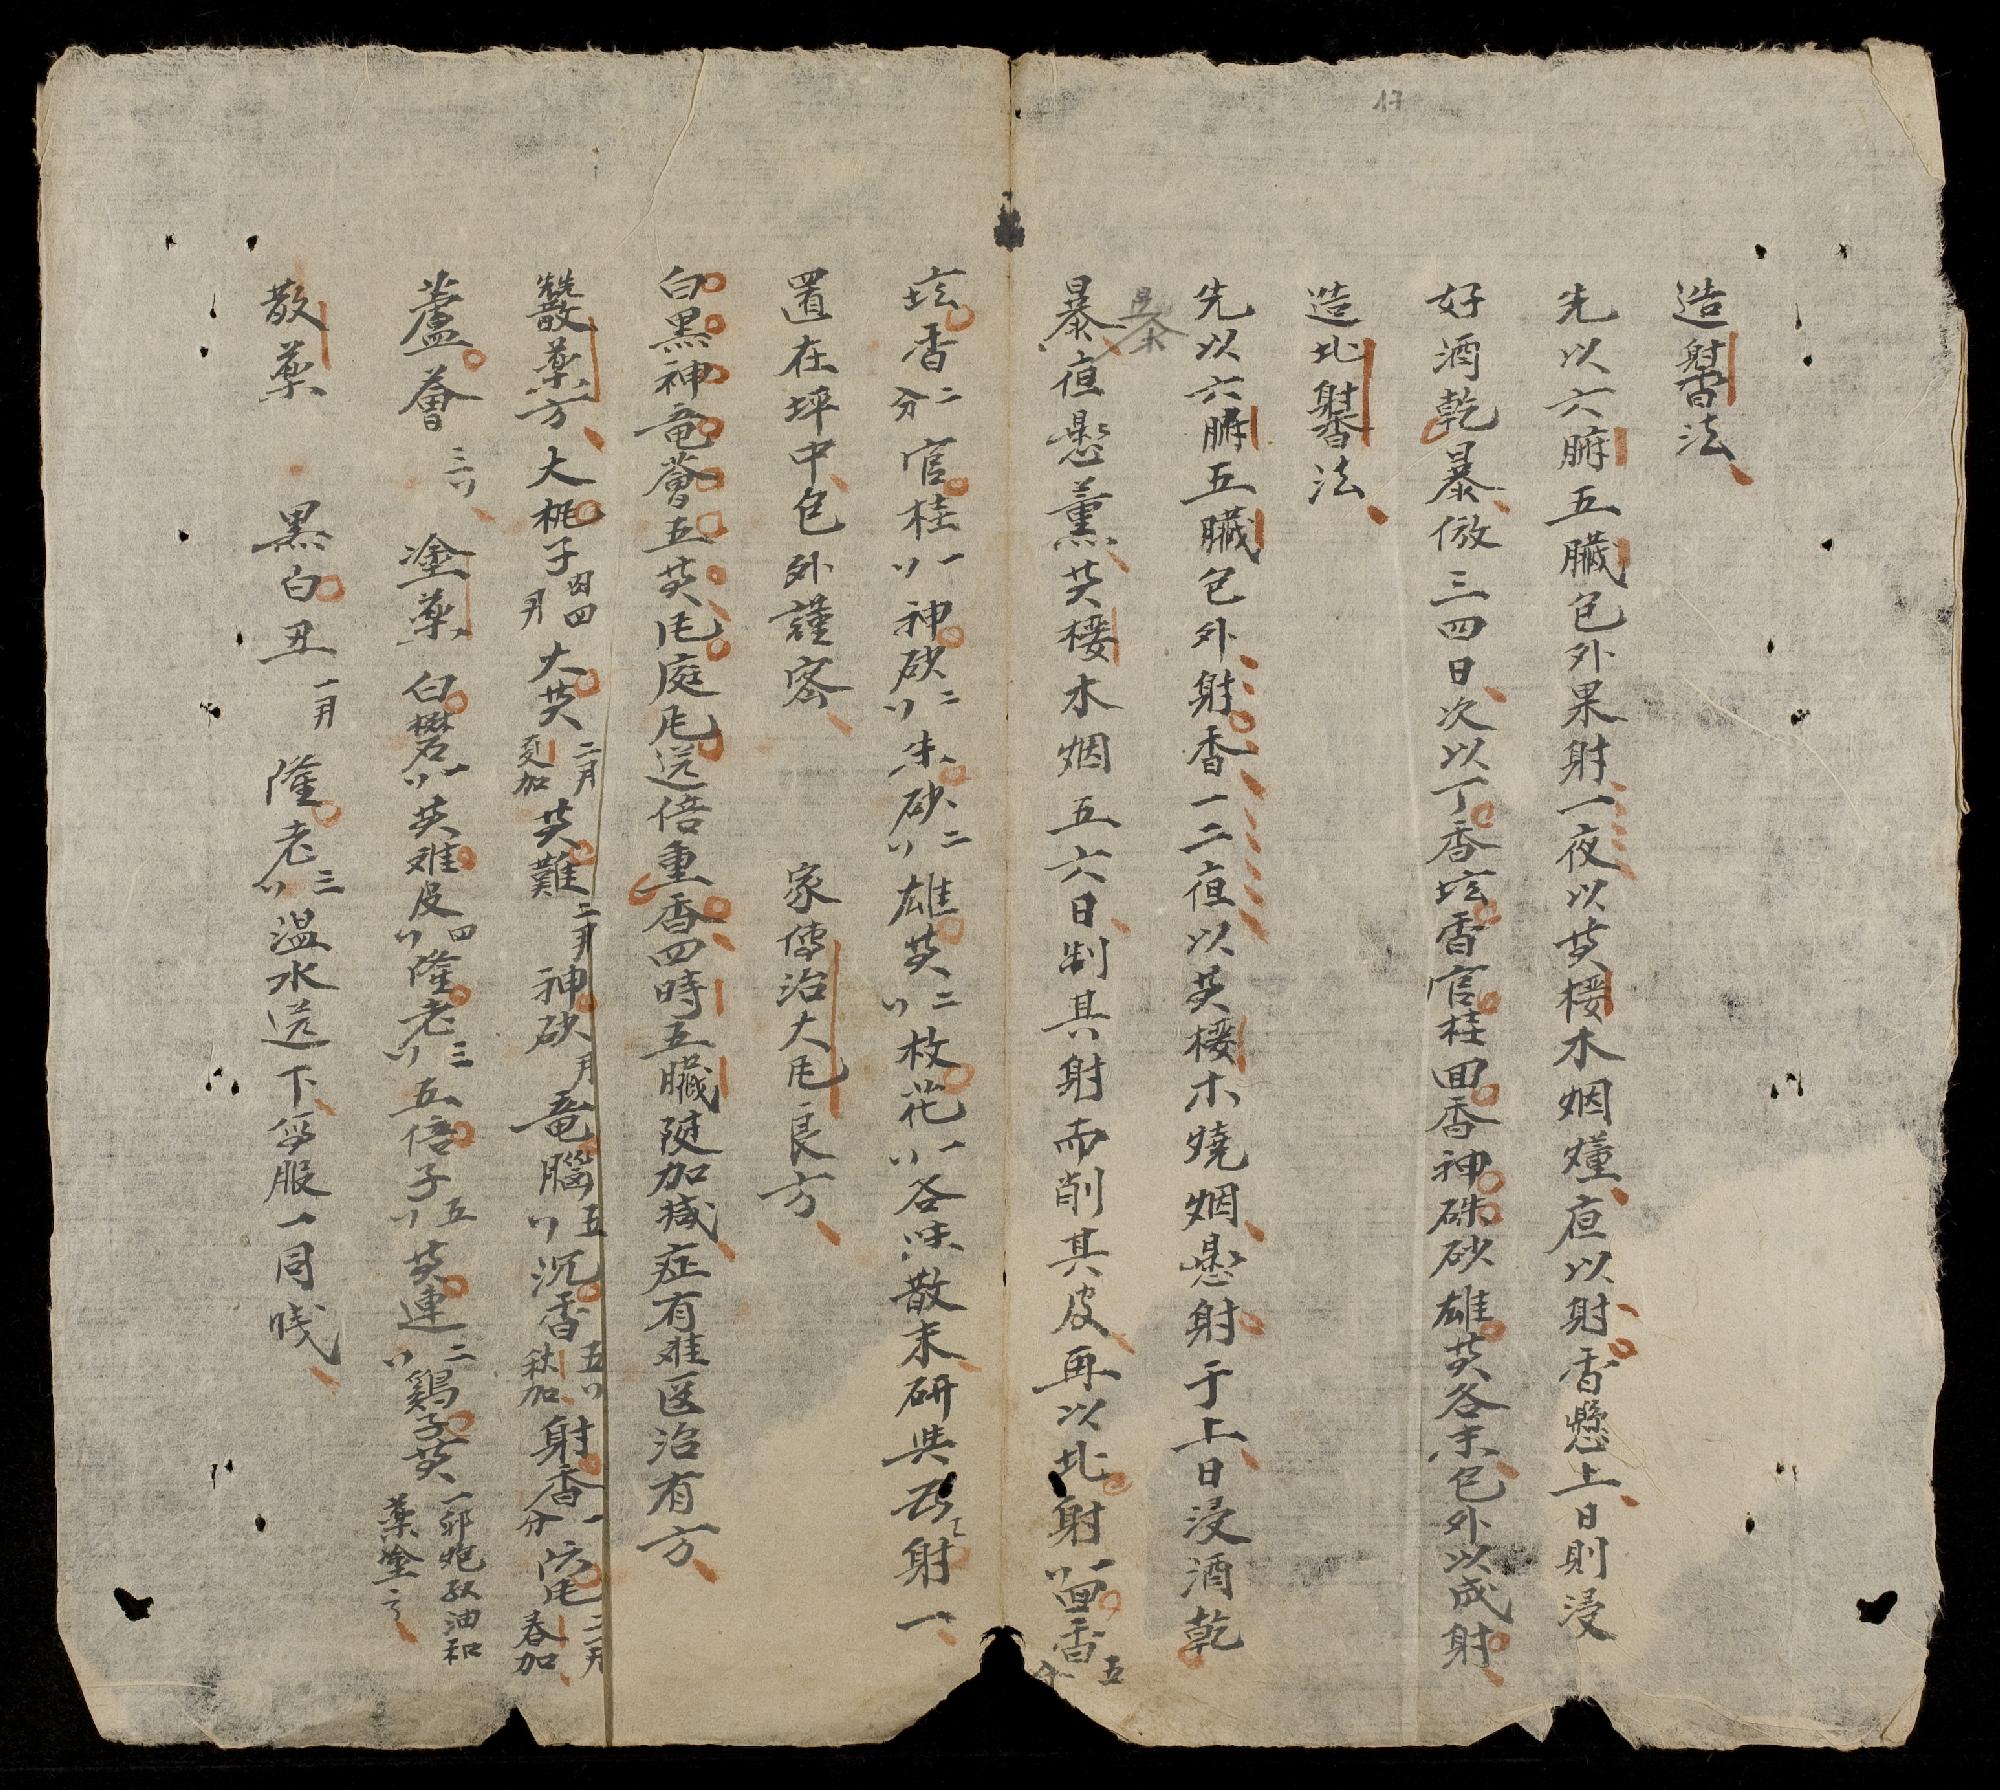 造射香法
先以六腑五臟包外果射一夜以芵楼木烟爐夜以射香懸上日則浸
好酒乾暴倣三四日次以丁香坛香官桂回香神硃砂雄芵各末包外以成射
造北射香法
先以六腑五臟包外射香一二夜以芵楼木燒烟懸射于上日浸酒乾
暴夜懸薰芵楼木烟五六日制其射而削其皮再以北射一回香五分
坛香二分官桂一神砂二朱砂二雄芵二枝花一各味散末研與射一
置在坪中包外謹密 家傳治大㞎良方
白黑神竜薈五芵㞎庭㞎送倍重香四時五臟陡加减症有难医治有方
藥方大桃子四月大芵二月夏加芵難二月神砂月竜腦五沉香五秋加射香一分二月春加
蘆薈三 塗藥白礬一芵难皮四隆老三五倍子五芵連二鷄子芵一卵油和藥塗之
散藥 黑白丑一月隆老三温水送下每服一同㦮
17